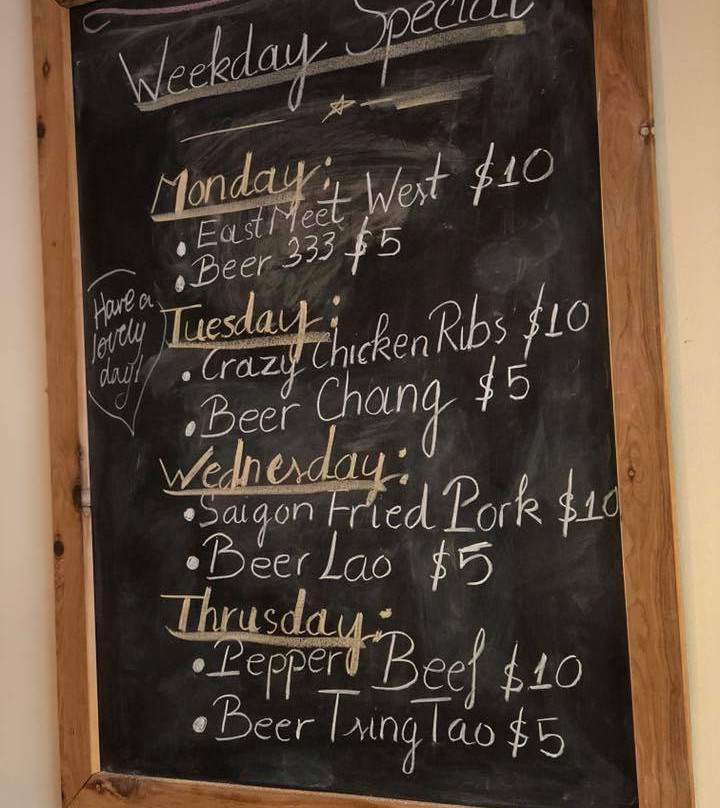 Weekday Special
Monday:
• East Meet West $10
• Beer 333 $5
Have a
lovely
day!
Tuesday:
• Crazy Chicken Ribs $10
• Beer Chang $5
Wednesday:
• Saigon Fried Pork $10
• Beer Lao $5
Thrusday:
• Peppery Beef $10
• Beer Tsing Tao $5